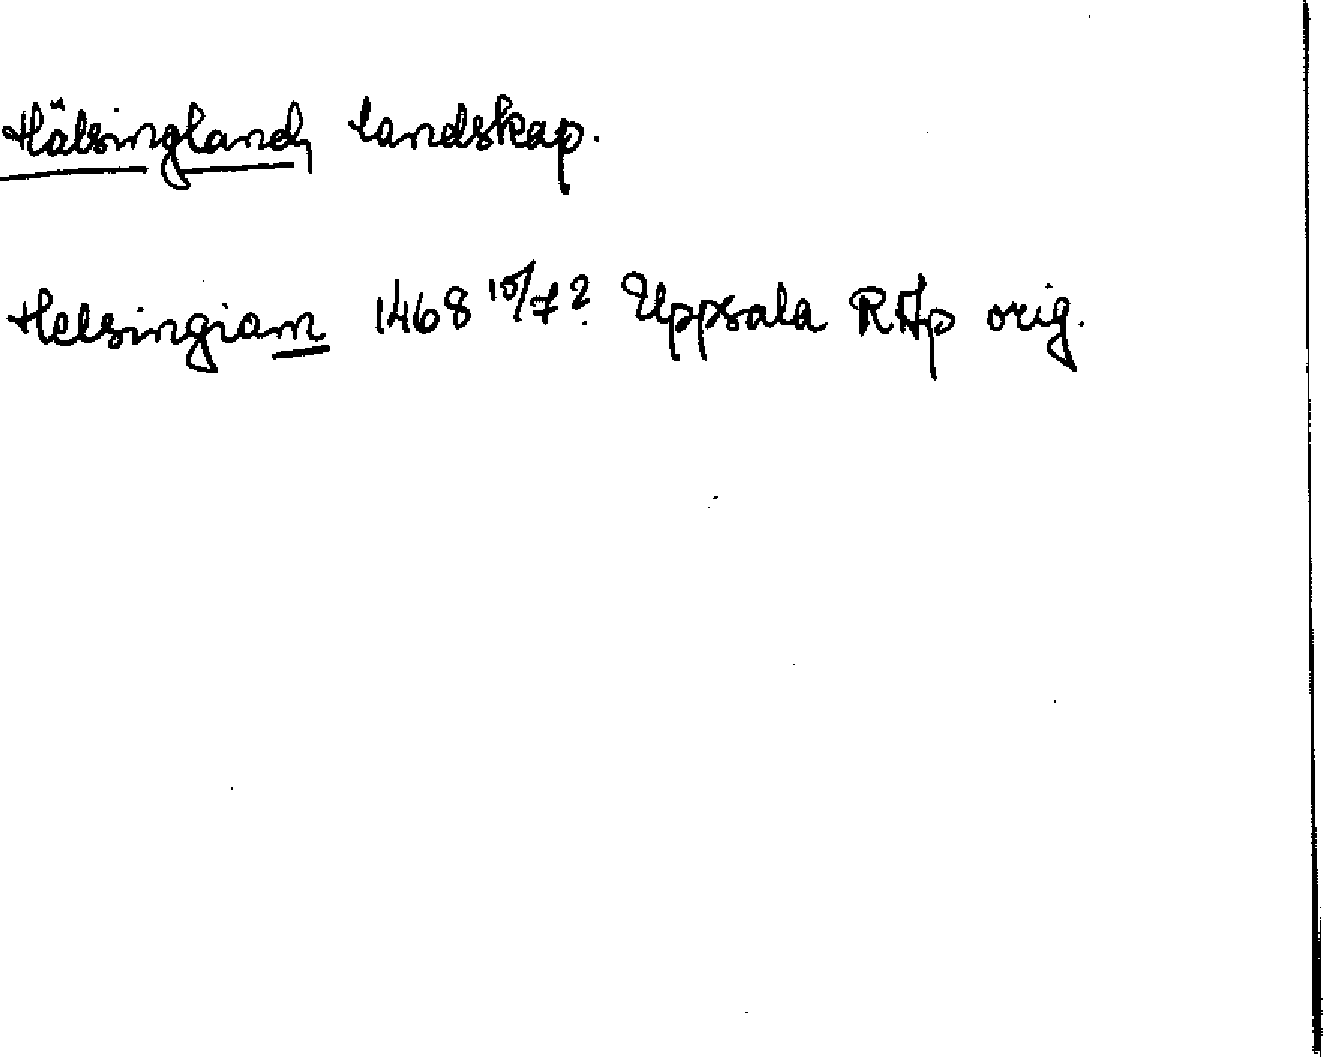 Hälsingland, landskap.
Helsingiam 1468 15/7? Uppsala RAp orig.